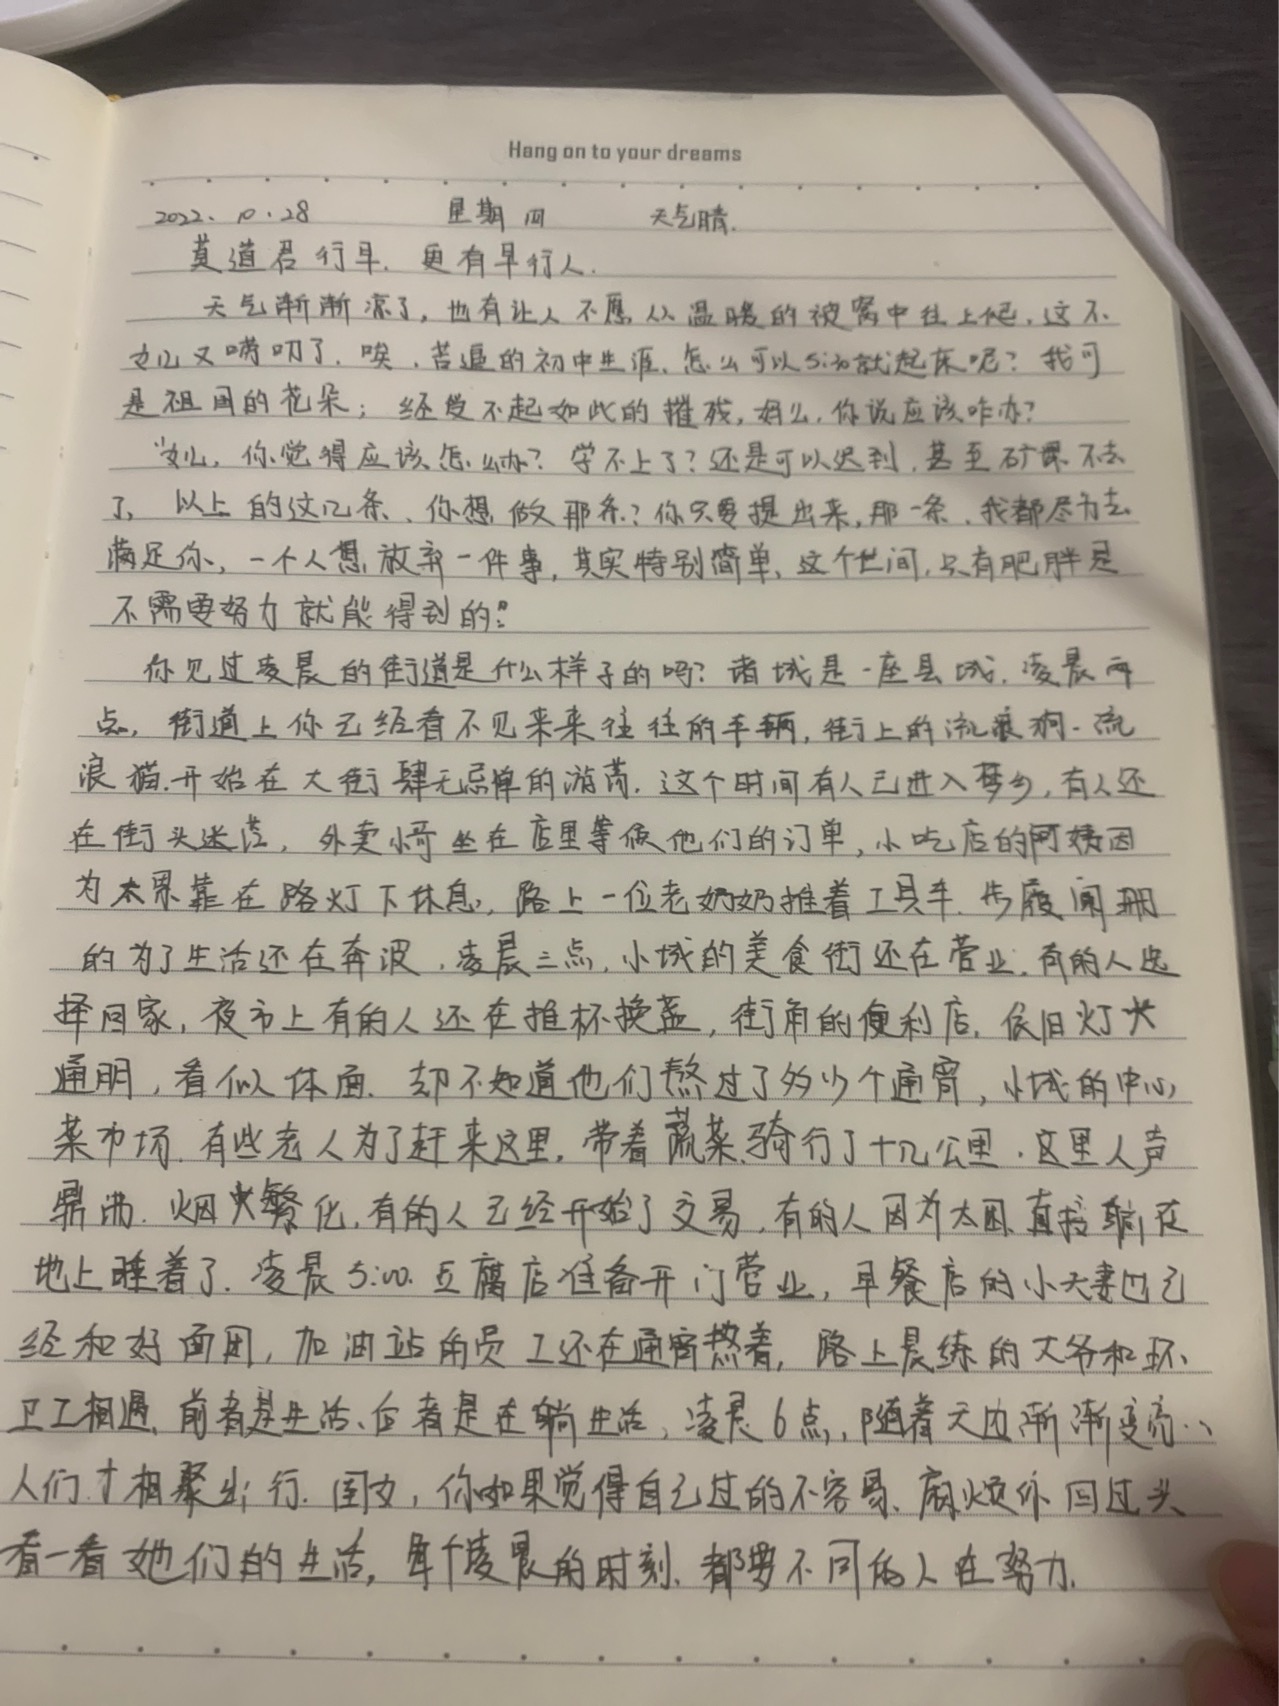 Hang on to your dreams
2022.10.28 星期四 天气晴.
莫道君行早. 更有早行人.
天气渐渐凉了, 也有让人不愿从温暖的被窝中往上爬, 这不
女儿又唠叨了. 唉, 苦逼的初中生涯, 怎么可以5:30就起床呢? 我可
是祖国的花朵; 经受不起如此的摧残, 妈么, 你说应该咋办?
"女儿, 你觉得应该怎么办? 学不上了? 还是可以迟到, 甚至矿课不去
了, 以上的这几条、你想做那条? 你只要提出来, 那一条, 我都尽力去
满足你, 一个人想放弃一件事, 其实特别简单, 这个世间, 只有肥胖是
不需要努力就能得到的!"
你见过凌晨的街道是什么样子的吗? 诸城是一座县城, 凌晨两
点, 街道上你已经看不见来来往往的车辆, 街上的流浪狗、流
浪猫, 开始在大街肆无忌惮的游荡, 这个时间有人已进入梦乡, 有人还
在街头迷茫, 外卖小哥坐在店里等候他们的订单, 小吃店的阿姨因
为太累靠在路灯下休息, 路上一位老奶奶推着工具车, 步履阑珊
的为了生活还在奔波, 凌晨三点, 小城的美食街还在营业, 有的人选
择回家, 夜市上有的人还在推杯换盏, 街角的便利店, 依旧灯火
通明, 看似体面, 却不知道他们熬过了多少个通宵, 小城的中心
菜市场, 有些老人为了赶来这里, 带着蔬菜, 骑行了十几公里, 这里人声
鼎沸, 烟火繁化, 有的人已经开始了交易, 有的人因为太困, 直接躺在
地上睡着了. 凌晨5:00. 豆腐店准备开门营业, 早餐店的小夫妻也已
经和好面团, 加油站的员工还在通宵熬着, 路上晨练的大爷和环
卫工相遇, 前者是生活、后者是在躺生活, 凌晨6点, 随着天边渐渐变亮,
人们才相聚出行. 闺女, 你如果觉得自己过的不容易, 麻烦你回过头
看一看她们的生活, 每个凌晨的时刻, 都要不同的人在努力.